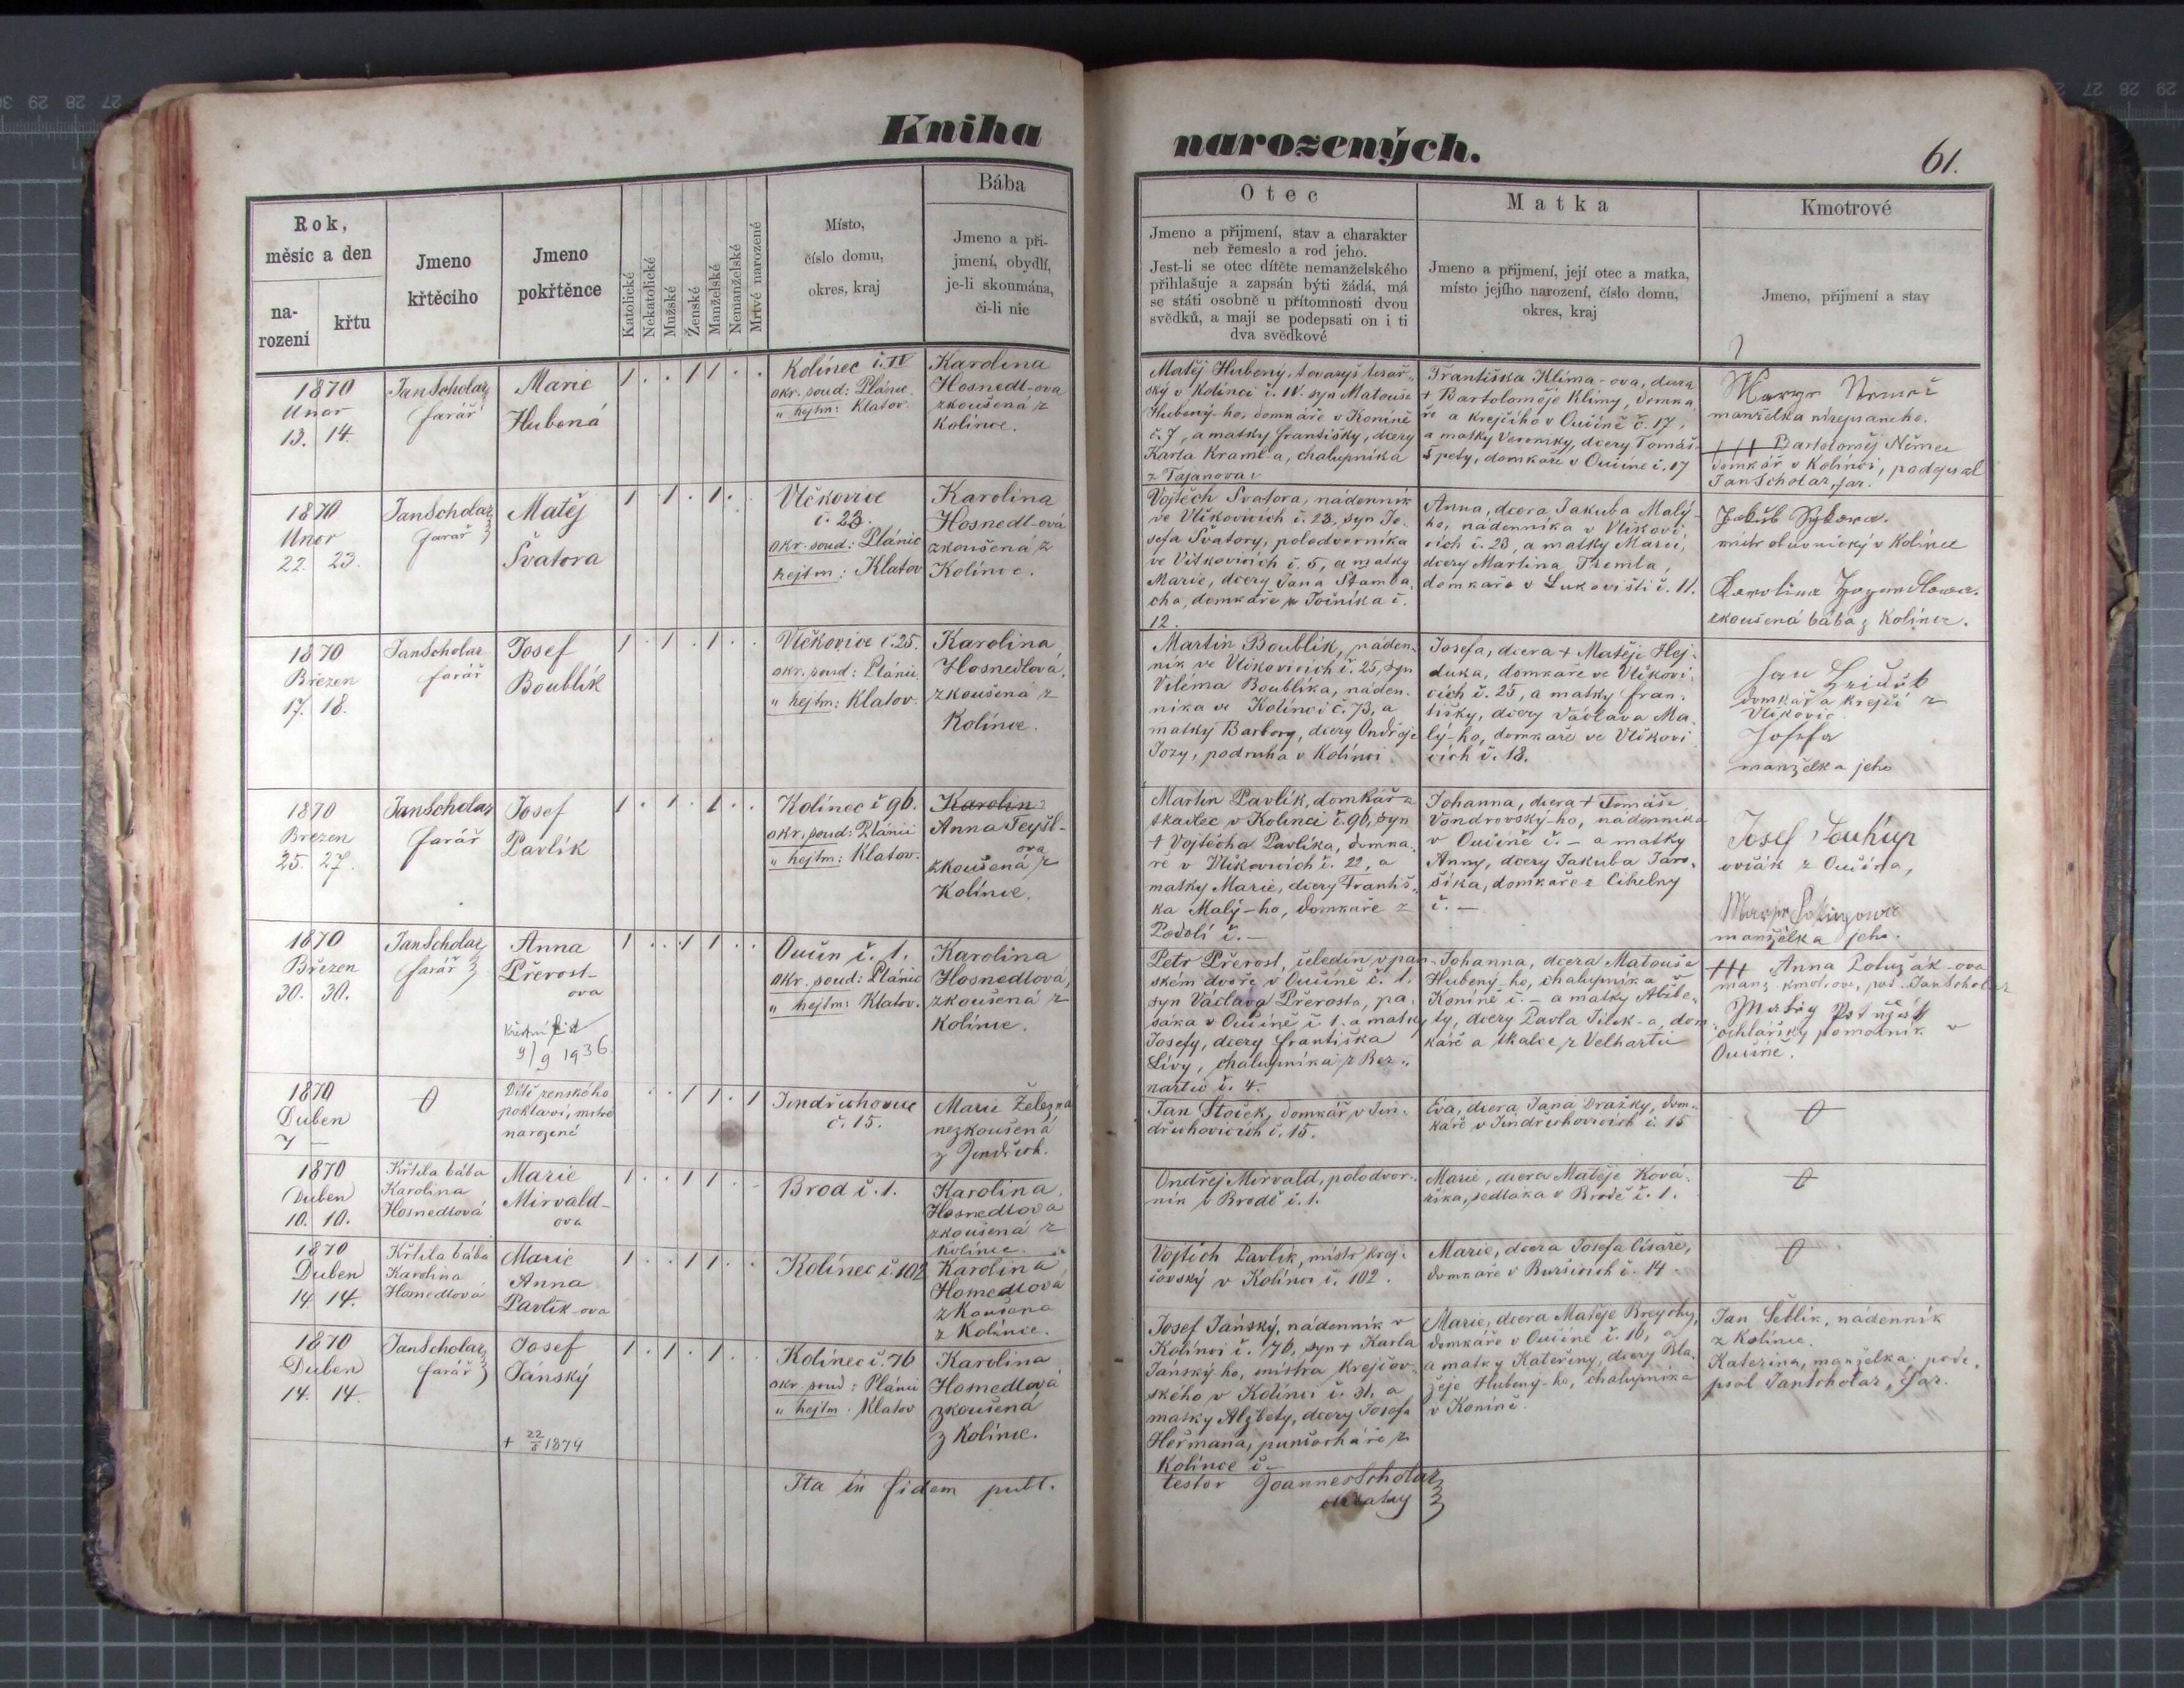 Kniha
narozených.
61.
Rok,
měsíc a den
na-
rození
křtu
Jmeno
křtěcího
Jmeno
pokřtěnce
Katolické
Nekatolické
Mužské
Ženské
Manželské
Nemanželské
Mrtvé narozené
Místo,
číslo domu,
okres, kraj
Bába
Jmeno a pří-
jmení, obydlí,
je-li skoumána,
či-li nic
Otec
Jmeno a přijmení, stav a charakter
neb řemeslo a rod jeho.
Jest-li se otec dítěte nemanželského
přihlašuje a zapsán býti žádá, má
se státi osobně u přítomnosti dvou
svědků, a mají se podepsati on i ti
dva svědkové
Matka
Jmeno a přijmení, její otec a matka,
místo jejího narození, číslo domu,
okres, kraj
Kmotrové
Jmeno, přijmení a stav
1870
Unor
13. 14.
Jan Scholaz
farář
Marie
Hubená
1 . . 1 1 . .
Kolínec č. IV
okr. soud: Plánic
" hejtm: Klatov.
Karolina
Hosnedl-ova
zkoušená z
Kolínce.
Matěj Hubený, tovaryš tesař-
ský v Kolínci č. IV. syn Matouše
Hubený-ho, domkáře v Koníně
č. 7, a matky Františky, dcery
Karla Kraml-a, chalupníka
z Tajanova
Františka Klíma-ova, dcera
+ Bartoloměje Klímy, domka
ře a krejčího v Oučíně č. 17,
a matky Veroniky, dcery Tomáš.
Špety, domkáře v Oučíně č. 17
manželka nížepsaného.
+++ Bartoloměj Němec
domkář v Kolínci, podepsal
Jan Scholaz, far.
1870
Unor
22. 23.
Jan Scholaz
farář
Matěj
Švatora
1 . 1 . 1 . .
Vlčkovice
č. 23.
okr. soud: Plánic
hejtm: Klatov
Karolina
Hosnedl-ová
zkoušená z
Kolínce.
Vojtěch Svatora, nádenník
ve Vlčkovicích č. 23, syn Jo-
sefa Švatory, polodvorníka
ve Vítkovicích č. 5, a matky
Marie, dcery Jana Štamba
cha, domkáře z Točníka č.
12.
Anna, dcera Jakuba Malý-
ho, nádenníka v Vlčkovi
cích č. 23, a matky Marie,
dcery Martina Tremla,
domkaře v Lukovišti č. 11.
Jakub Sýkora.
mistr obuvnický v Kolínce
Karolina
zkoušená bába z Kolínce.
1870
Březen
17. 18.
Jan Scholaz
farář
Josef
Boublík
1 . 1 . 1 . .
Vlčkovice č. 25.
okr. soud: Plánic.
" hejtm: Klatov.
Karolina
Hosnedlová,
zkoušená z
Kolínce.
Martin Boublík, náden-
ník ve Vlčkovicích č. 25, syn
Viléma Boublíka, náden-
níka ve Kolínci č. 73, a
matky Barbory, dcery Ondřeje
Jozy, podruha v Kolínci.
Josefa, dcera + Matěje Hej-
duka, domkaře ve Vlčkovi-
cích č. 25, a matky Fran-
tišky, dcery Václava Ma-
lý-ho, domkaře ve Vlčkovi
cích č. 18.
Jan
domkář a krejčí z
Vlčkovic
Josefa
manželka jeho
1870
Brezen
25. 27.
Jan Scholaz
farář
Josef
Pavlík
1 . 1 . 1 . .
Kolínec č 96.
okr. soud: Plánic
" hejtm: Klatov.
Karolin
Anna Teyšl-
ova
zkoušená z
Kolínce.
Martin Pavlík, domkář a
tkadlec v Kolínci č. 96, syn
+ Vojtěcha Pavlíka, domka-
ře v Vlčkovicích č. 22, a
matky Marie, dcery Františ-
ka Malý-ho, domkaře z
Podolí č. -
Johanna, dcera + Tomáše
Vondrovský-ho, nádenníka
v Oučíně č. - a matky
Anny, dcery Jakuba Jaro-
šíka, domkaře z Cihelny
č. -
Josef Soukup
ovčák z Oučína,
manželka jeho.
1870
Březen
30. 30.
Jan Scholaz
farář
Anna
Přerost-
ova
Křestní list
9/9 1936.
1 . . 1 1 . .
Oučín č. 1.
okr. soud: Plánic
" hejtm: Klatov.
Karolina
Hosnedlová,
zkoušená z
Kolínce.
Petr Přerost, čeledín v pan-
ském dvoře v Oučíně č. 1.
syn Václava Přerosta, pa-
sáka v Oučíně č 1. a matky
Josefy, dcery Františka
Lívy, chalupníka z Ber-
nartic č. 4.
Johanna, dcera Matouše
Hubený-ho, chalupník a
Koníně č. - a matky Alžbě-
ty, dcery Pavla Jílek-a, dom
kaře a tkalce z Velhartic
+++ Anna Potužák-ova
manž. kmotrova, pod. Jan Scholaz
Matěj Potužák
pomocník v
Oučíně.
1870
Duben
7 -
0
Dítě ženského
pohlaví, mrtvě
narozené
. . 1 1 . 1
Jindřichovice
č. 15.
Marie Železná
nezkoušená
z Jindřich.
Jan Stoček, domkář, v Jin-
dřichovicích č. 15.
Eva, dcera Jana Dražky, dom-
kaře v Jindřichovicích č. 15
0
1870
Duben
10. 10.
Křtila bába
Karolina
Hosnedlová
Marie
Mirvald-
ova
1 . . 1 1 . .
Brod č. 1.
Karolina
Hosnedlova
zkoušená z
Kolínce.
Ondřej Mirvald, polodvor-
ník v Brodě č. 1.
Marie, dcera Matěje Ková-
říka, sedláka v Brodě č. 1.
0
1870
Duben
14. 14.
Křtila bába
Karolina
Hosnedlová
Marie
Anna
Pavlík-ova
1 . . 1 1 . .
Kolínec č. 102
Karolina
Hosnedlova
zkoušena
z Kolínce.
Vojtěch Pavlík, mistr krej-
čovský v Kolínci č. 102.
Marie, dcera Josefa Císaře,
domkaře v Buršicích č. 14.
0
1870
Duben
14. 14.
Jan Scholaz
farář
Josef
Jánský
+ 22/5 1874
1 . 1 . 1 . .
Kolínec č. 76
okr. soud: Plánic
" hejtm. Klatov
Karolina
Hosnedlová
zkoušená
z Kolínce.
Josef Jánský, nádenník v
Kolínci č. 76, syn + Karla
Jánský ho, mistra krejčov-
ského v Kolínci č. 31, a
matky Alžběty, dcery Josefa
Heřmana, punčocháře z
Kolínce č. -
Marie, dcera Matěje Breychy,
domkáře v Oučíně č. 16, a
a matky Kateřiny, dcery Bla-
žeje Hubený-ho, chalupníka
v Koníně
Jan Šetlík, nádenník
z Kolínce.
Katezina, manželka: pode-
psal Jan Scholaz, far.
Ita in fidem publ.
testor Joannes Scholaz